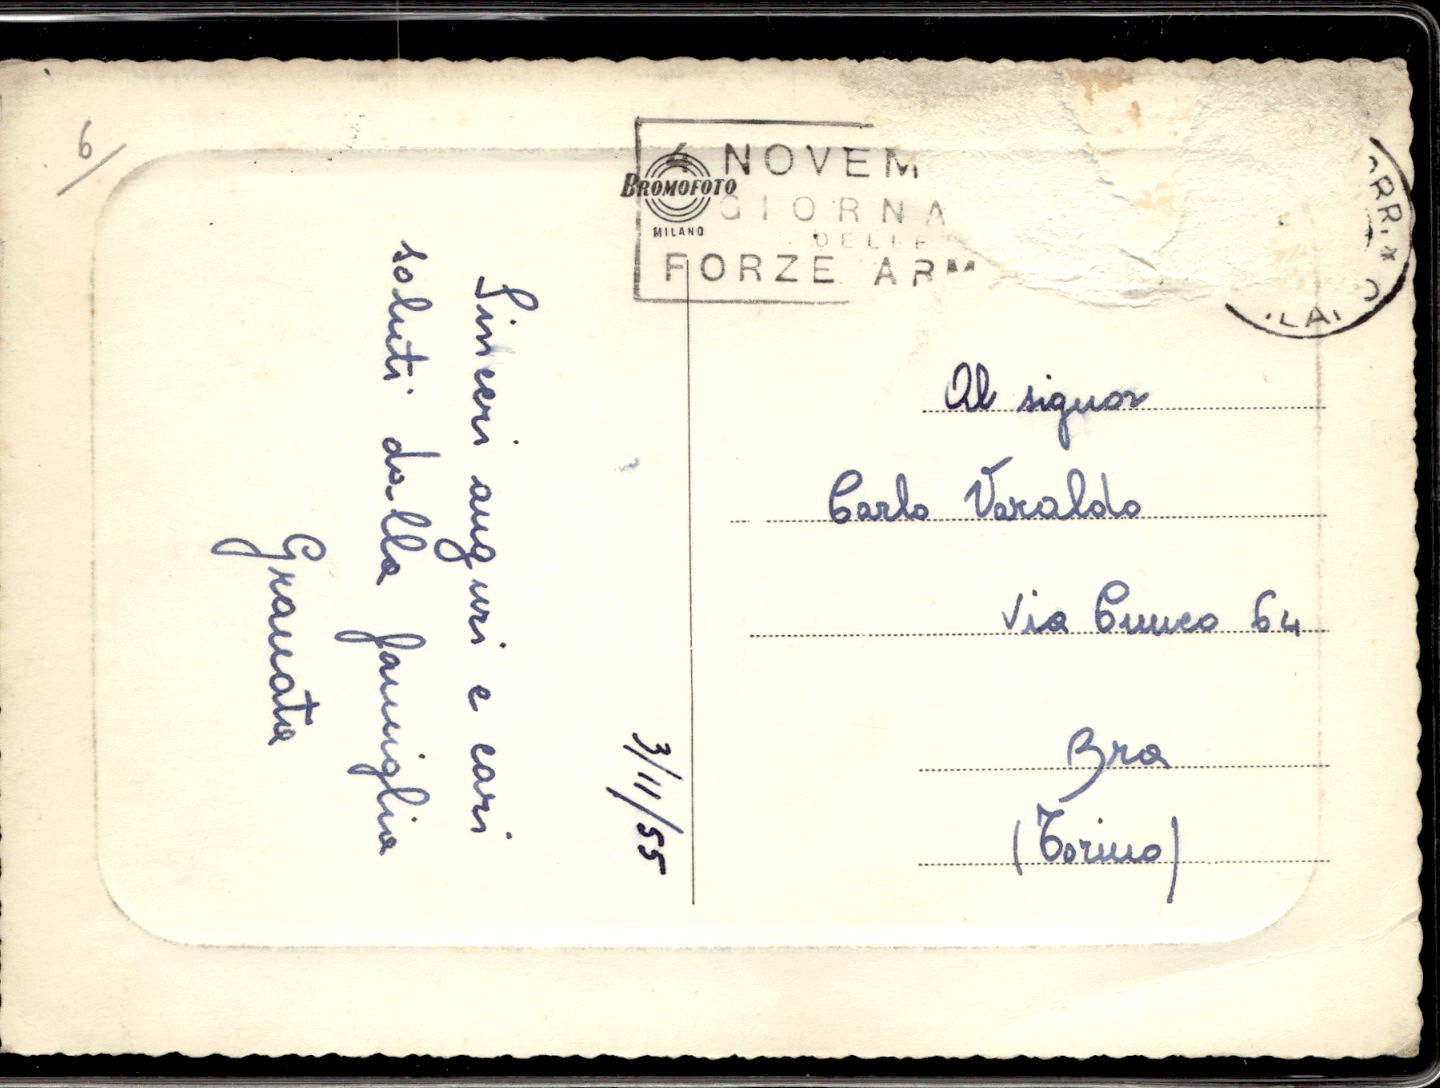 6/
4 NOVEM
GIORNA
DELLE
FORZE ARM
BROMOFOTO
MILANO
ORR. *
ILA
Sinceri auguri e cari
saluti dalla famiglia
Granata
3/11/55
Al signor
Carlo Varaldo
Via Cuneo 64
Bra
(Torino)